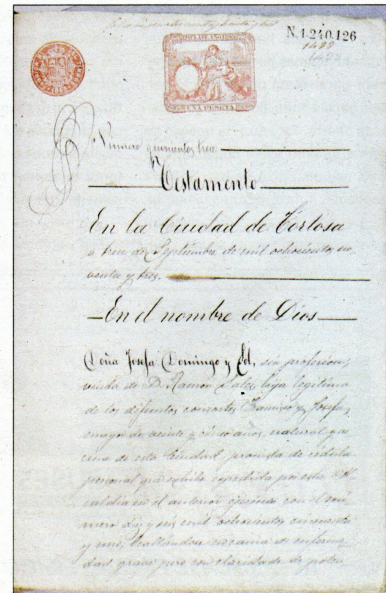 N.1.240.126
UNA PESETA
Número quinientos tres.
Testamento
En la Ciudad de Tortosa
a trece de Septiembre de mil ochocientos no-
venta y tres.
En el nombre de Dios
Doña Josefa Domingo y Lel, sin profesion,
viuda de D. Ramon hija legítima
de los difuntos consortes Ramiro y Josefa,
mayor de veinte y cinco años, natural y ve-
cina de esta Ciudad, provista de cédula
personal que exhibe expedida por esta Al-
caldia en el anterior ejercicio con el nú-
mero diez y seis mil ochocientos cincuenta
y uno, hallándose de enferme-
dad grave pero con claridad de poten